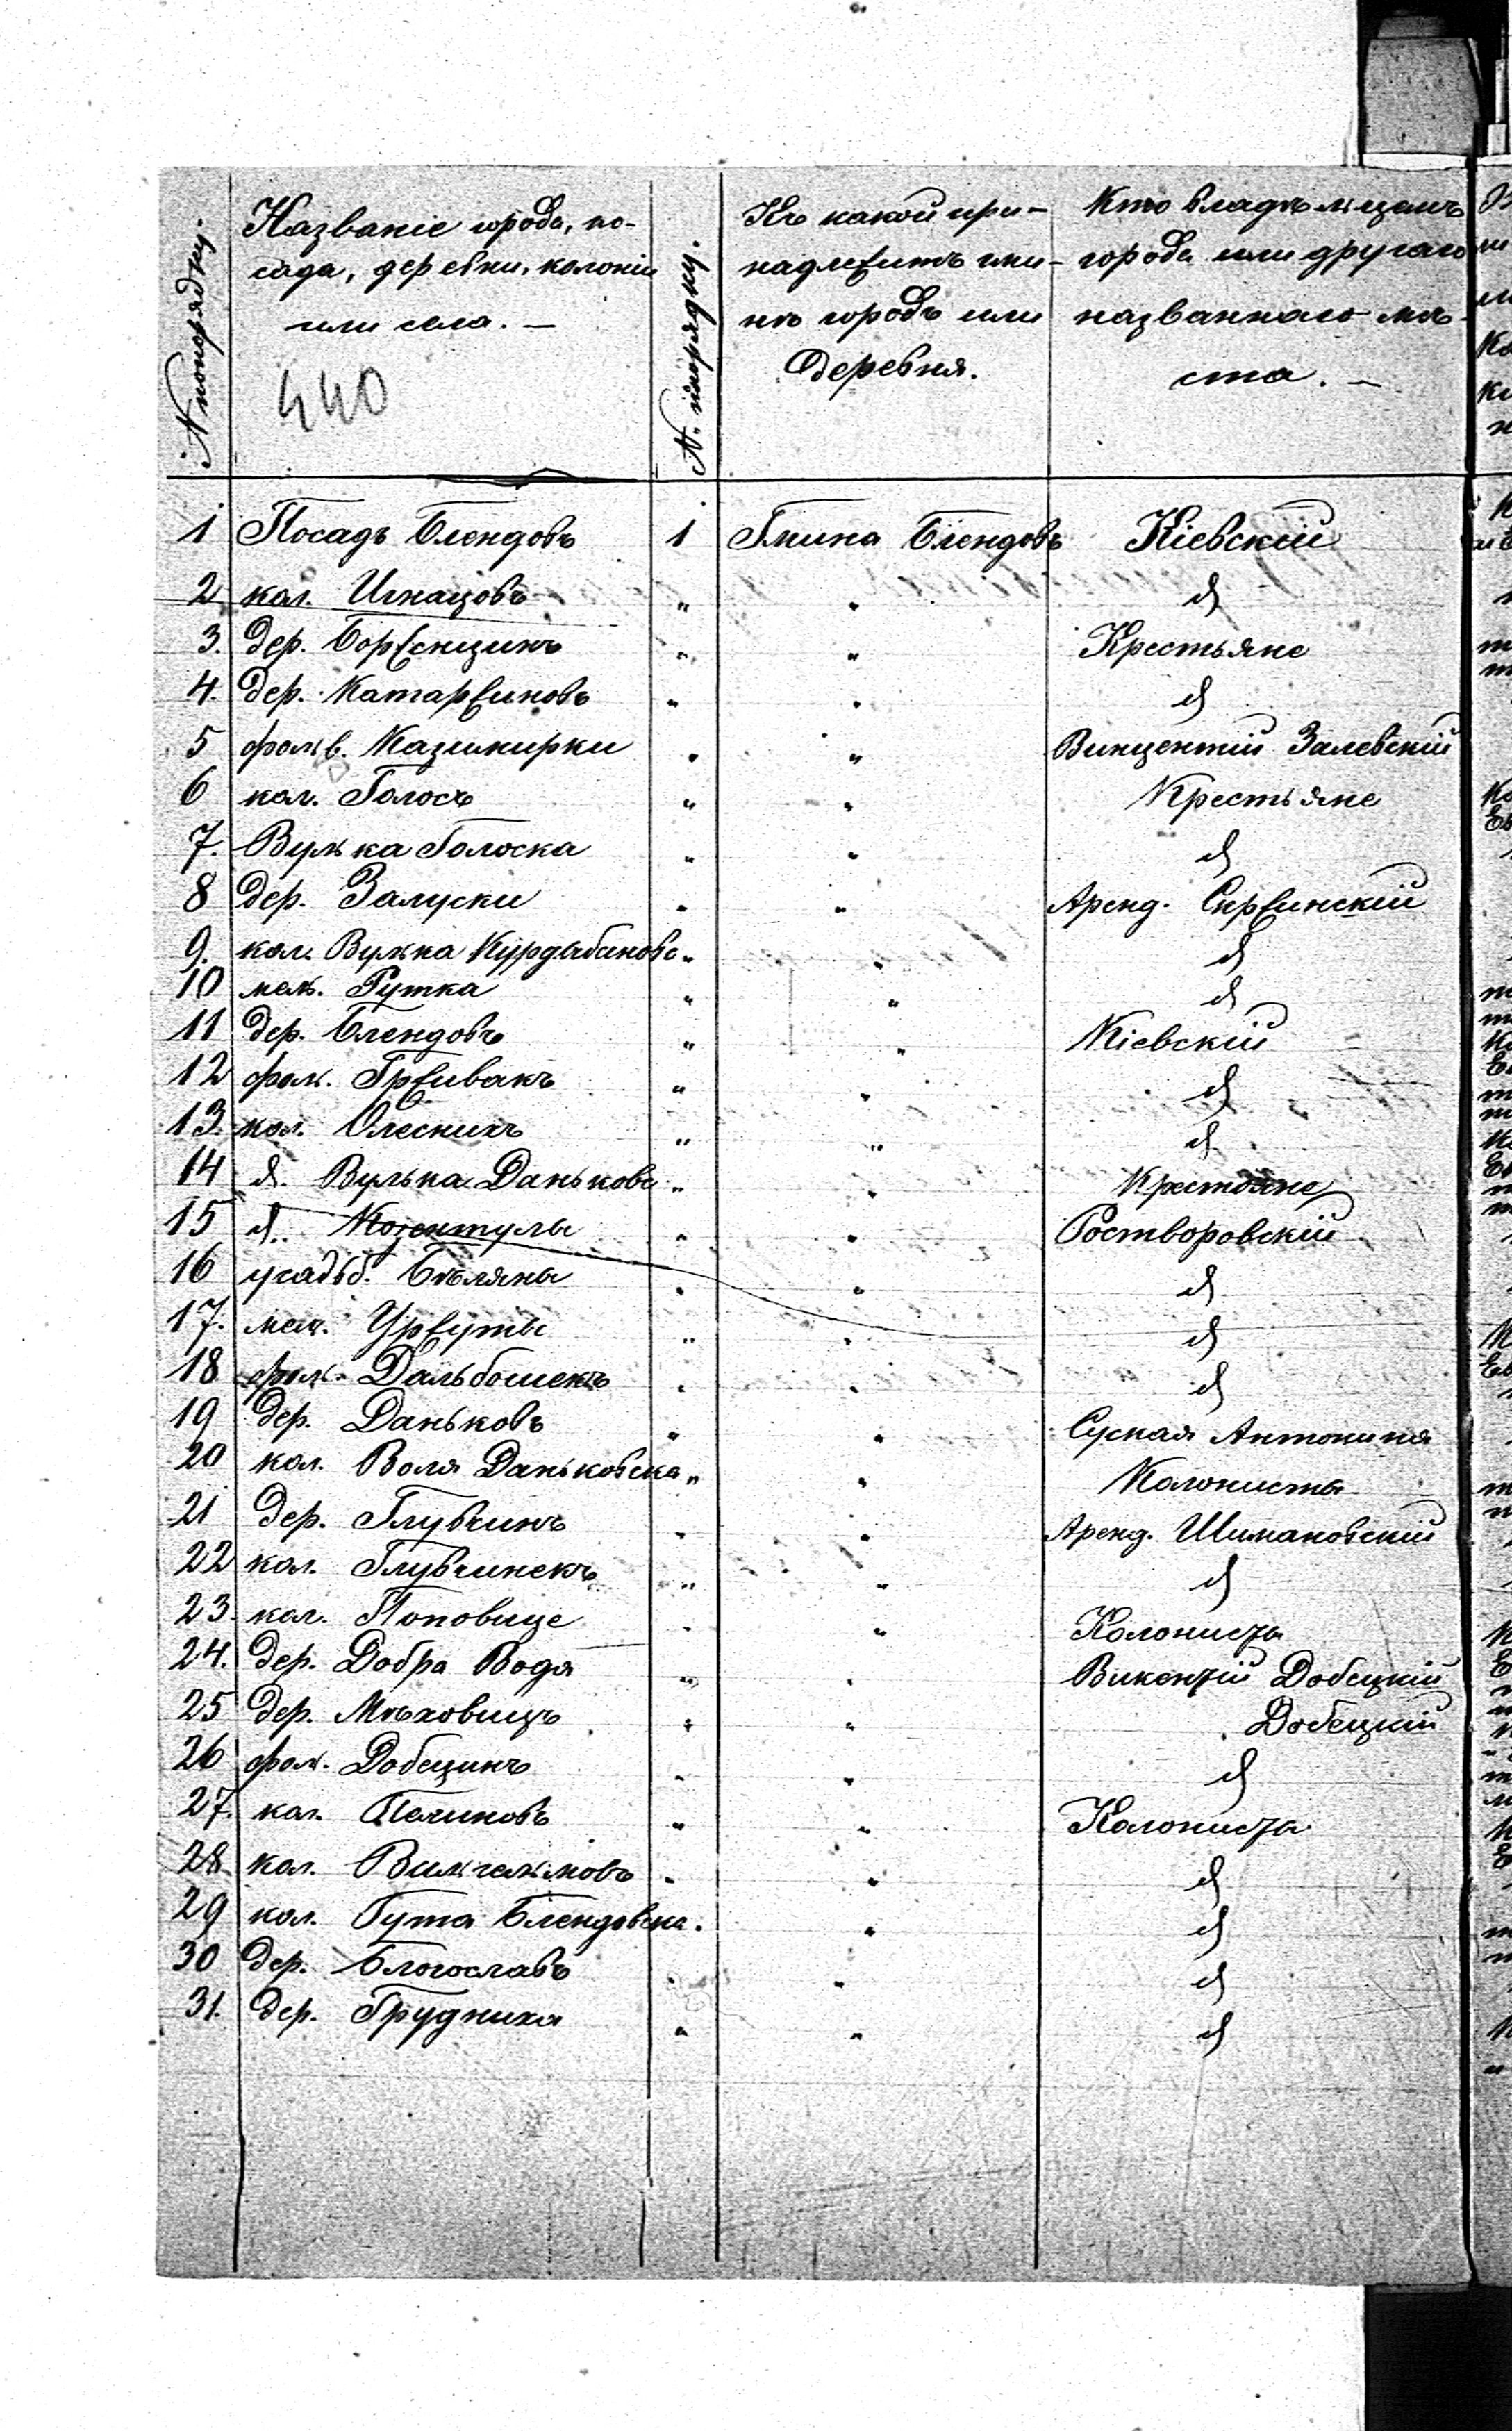 N попорядку.
Названіе города, по-
сада, деревни, колоніи
или села. —
440
N. попорядку.
Къ какой при-
надлежитъ гми-
нѣ городъ или
деревня.
Кто владѣльцемъ
города или другаго
названнаго мѣ-
ста. —
1 Посадъ Блендовъ 1 Гмина Блендовъ Кіевскій
2 кол. Игнацовъ " " д
3. дер. Борженцинъ " " Крестьяне
4. дер. Катаржиновъ " " д
5 фольв. Казимирки " " Винцентій Залевскій
6 кол. Голосъ " " Крестьяне
7. Вулька Голоска " " д
8 дер. Залуски " " Аренд. Скржинскій
9. кол. Вулька Курдыбановс. " " д
10 мел. Рутка " " д
11 дер. Блендовъ " " Кіевскій
12 фол. Грживакъ " " д
13. кол. Олесникъ " " д
14 д. Вулька Даньковс " " Крестьяне
15 д. Кожентулы " " Ростворовскій
16 усадьб. Бѣляны " " д
17. мел. Уржуты " " д
18 фол. Дальбошекъ " " д
19 дер. Даньковъ " " Суская Антонина
20 кол. Воля Даньковска " " Колонисты
21 дер. Глувчинъ " " Аренд. Шимановскій
22 кол. Глувчинекъ " " д
23. кол. Поповице " " Колонисты
24. дер. Добра Вода " " Викентій Добецкій
25 дер. Мѣховицъ " " Добецкій
26 фол. Добецинъ " " д
27. кол. Пелиновъ " " Колонисты
28. кол. Вильгельмовъ " " д
29 кол. Гута Блендовска. " д
30 дер. Блогославъ " " д
31. дер. Грудниха " " д